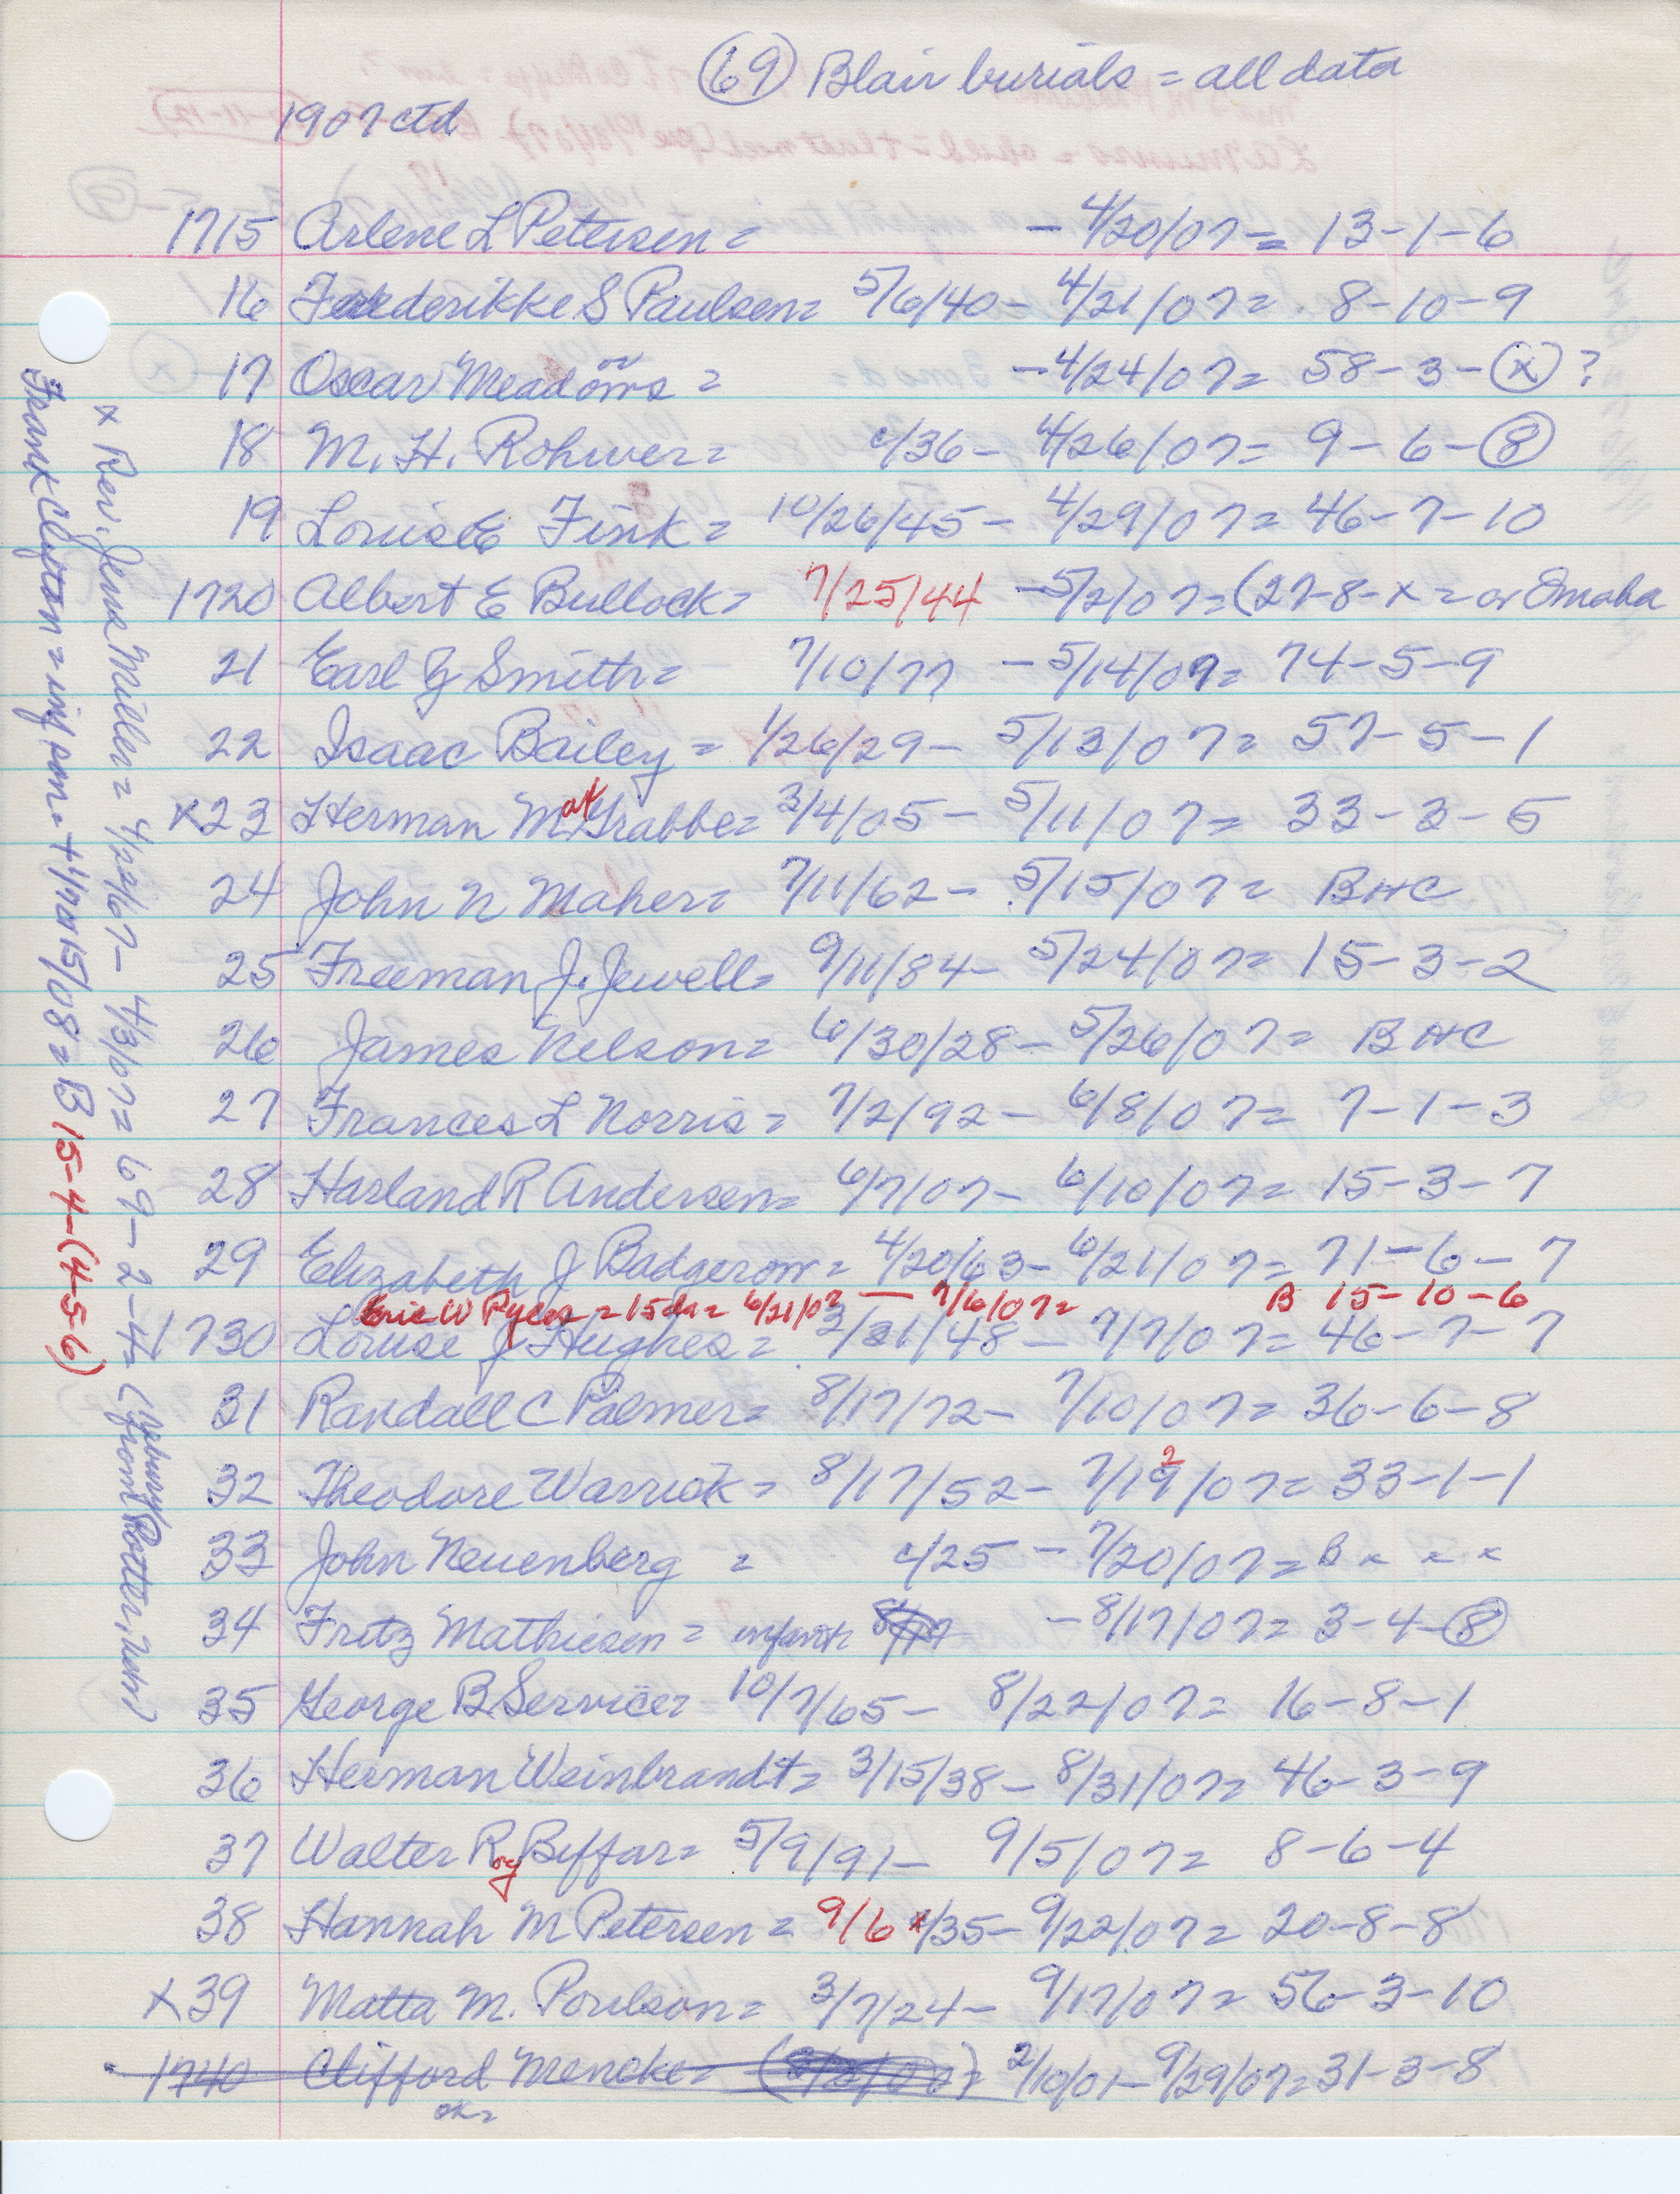 (69) Blair burials = all data
1907 ctd
1715 Arlene L Petersen = - 4/20/07 = 13-1-6
16 Frederikke S Paulsen = 5/6/40 - 4/21/07 = 8-10-9
17 Oscar Meadows = - 4/24/07 = 58-3-(x) ?
18 M. H. Rohwer = c/36 - 4/26/07 = 9-6-(8)
19 Louis E Fink = 10/26/45 - 4/29/07 = 46-7-10
1720 Albert E Bullock = 7/25/44 - 5/2/07 = (27-8-x = or Omaha
21 Earl G Smith = 7/10/77 - 5/14/07 = 74-5-9
22 Isaac Bailey = 1/26/29 - 5/13/07 = 57-5-1
x23 Herman M. Grabbe = 3/4/05 - 5/11/07 = 33-3-5
24 John N Maher = 7/11/62 - 5/15/07 = BHC
25 Freeman J. Jewell = 9/11/84 - 5/24/07 = 15-3-2
26 James Nelson = 6/30/28 - 5/26/07 = BHC
27 Frances L Norris = 7/2/92 - 6/8/07 = 7-1-3
28 Harland R Andersen = 6/7/07 - 6/10/07 = 15-3-7
29 Elizabeth J Badgerow = 4/20/63 - 6/21/07 = 71-6-7
W = 15da = 6/21/07 — 7/6/07 = B 15-10-6
1730 Louise J Hughes = 3/21/48 - 7/7/07 = 46-7-7
31 Randall C Palmer = 8/17/72 - 7/10/07 = 36-6-8
32 Theodore Warrick = 8/17/52 - 7/19/07 = 33-1-1
2
33 John Neuenberg = c/25 - 7/20/07 = B x x x
34 Fritz Mathiesen = infant - 8/17/07 = 3-4-(8)
35 George B Service = 10/7/65 - 8/22/07 = 16-8-1
36 Herman Weinbrandt = 3/15/38 - 8/31/07 = 46-3-9
37 Walter Roy Biffar = 5/9/91 - 9/5/07 = 8-6-4
38 Hannah M Petersen = 9/6 /35 - 9/22/07 = 20-8-8
x39 Matta M. Poulson = 3/7/24 - 9/17/07 = 56-3-10
1740 Clifford Mencke = 2/10/01 - 9/29/07 = 31-3-8
x Rev. Jens Miller = 4/22/67 - 4/3/07 = 69-2-4 = (from Potter, Neb)
Frank Clifton = inf son = + 4/ 15/08 = B 15-4-(4-5-6)